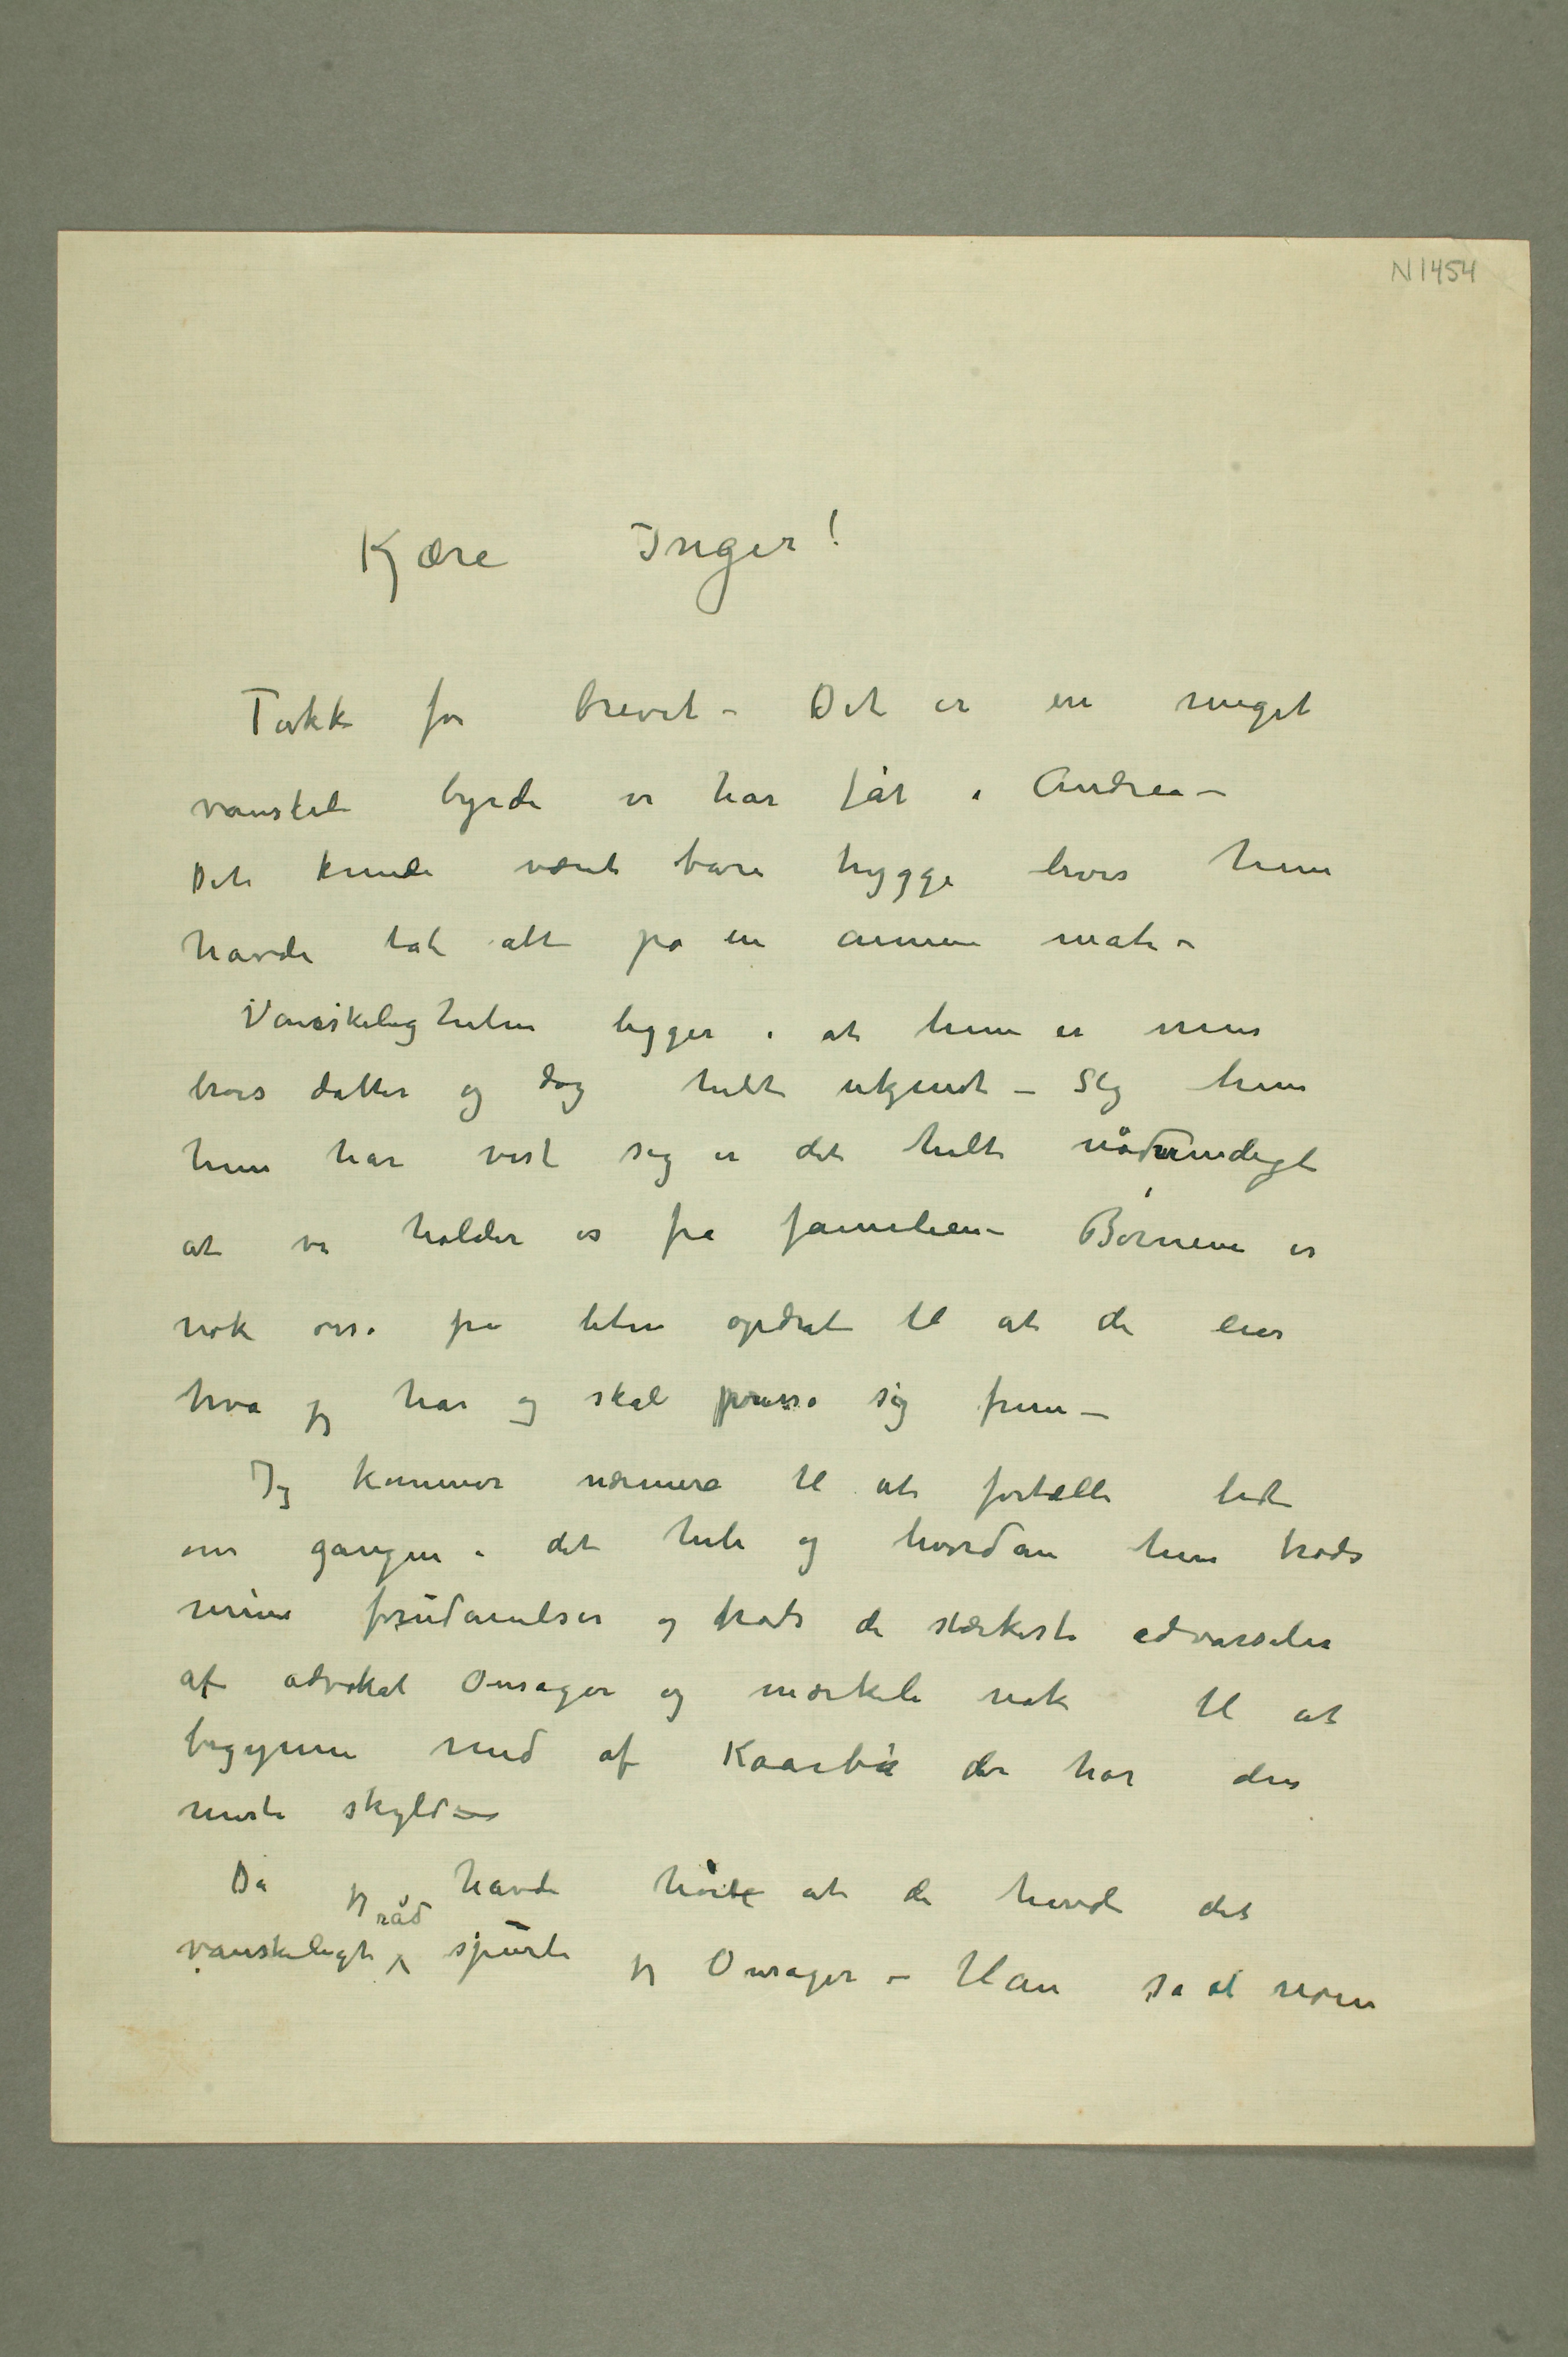 N 1454
Kjære Inger!
Takk for brevet – Det er en meget
vanskeli byrde vi har fåt i Andrea –
Det kunde været bare hygge hvis hun
havde tat alt på en annen måte –
Vanskeligheten ligger i at hun er min
brors datter og dog helt ukjendt – Slig hun
hun har vist sig er det helt nødvendigt
at vi holder os fra familien – Børnene er
nok osså fra liten opdrat til at de eier
hva jeg har og skal presse sig frem –
Jeg kommer nærmere til at fortælle lidt
om gangen i det hele og hvordan hun trods
mine forudanelser og trods de stærkeste advarseler
af advokat Onsager og mærkeli nok til at
begynne med af Kaarbø der har den
meste skyld –
Da jeg havde hørt at de havde det
vanskeligt råd spurte jeg Onsager – Han sa at noen